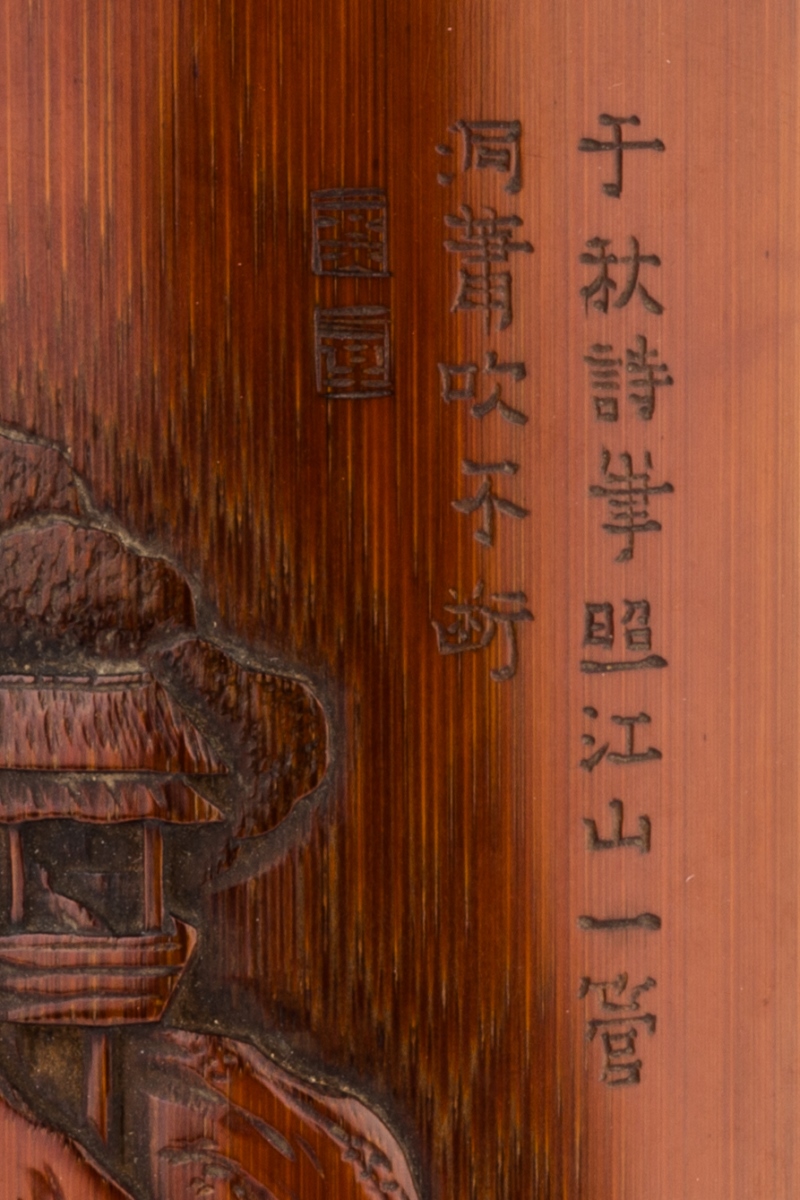 千秋詩筆照江山一管
洞簫吹不断